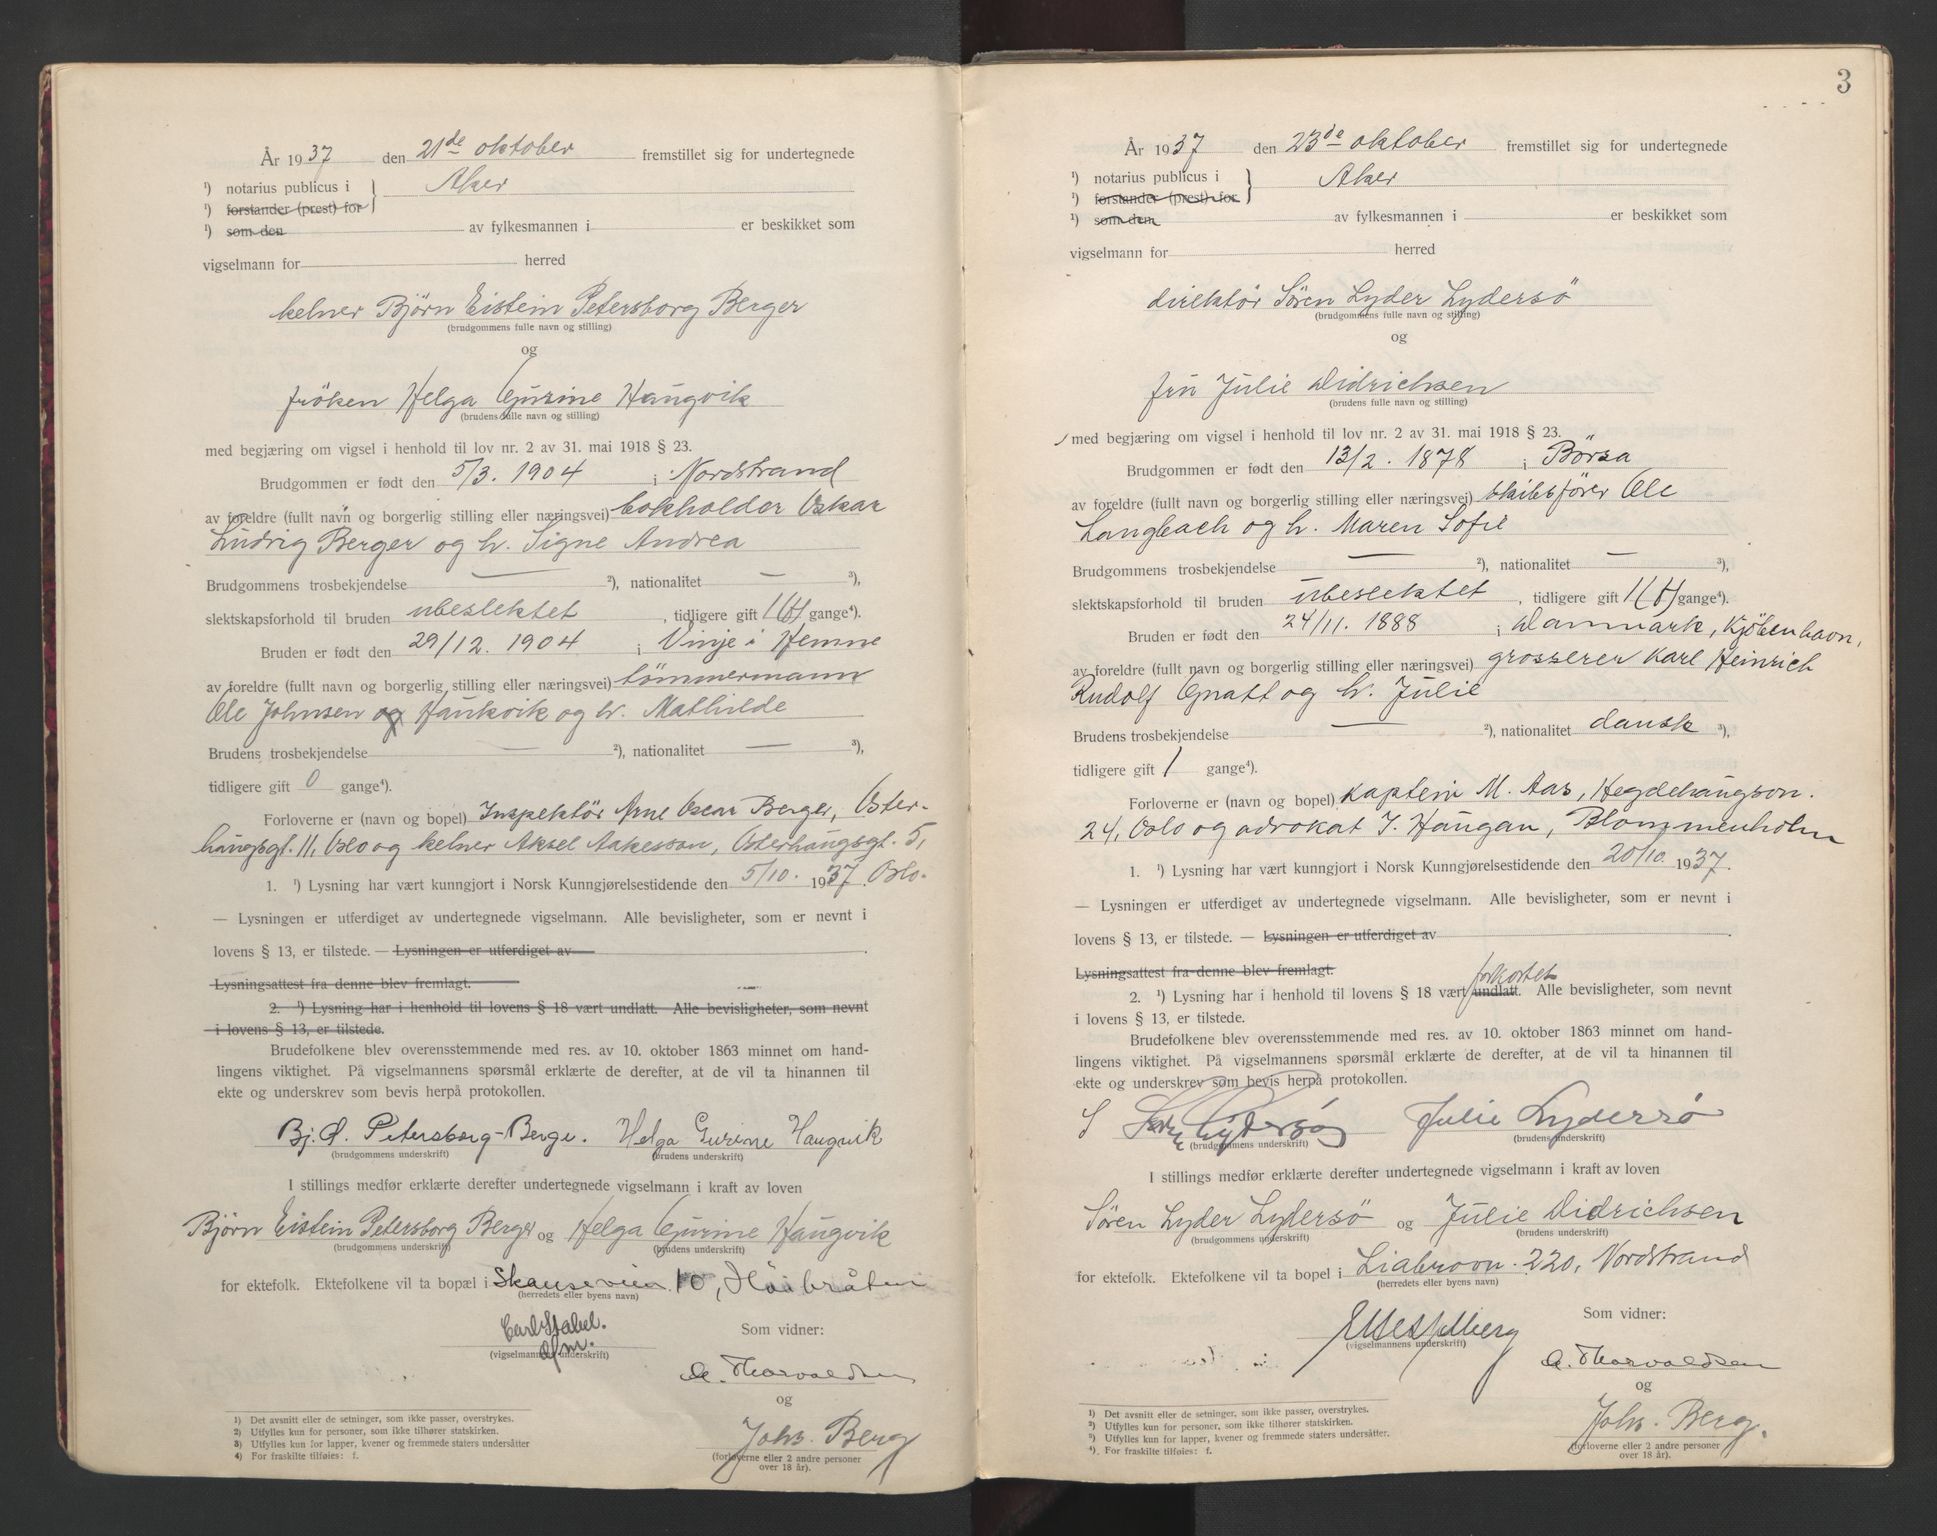 År 1937 den 21de oktober fremstillet sig for undertegnede
¹) notarius publicus i } Aker
¹) forstander (prest) for
¹) som den av fylkesmannen i er beskikket som
vigselmann for herred
kelner Björn Eistein Petersborg Berger
(brudgommens fulle navn og stilling)
og
fröken Helga Gurine Haugvik
(brudens fulle navn og stilling)
med begjæring om vigsel i henhold til lov nr. 2 av 31. mai 1918 § 23.
Brudgommen er født den 5/3. 1904 i Nordstrand
av foreldre (fullt navn og borgerlig stilling eller næringsvei) bokholder Oskar
Ludvig Berger og h. Signe Andrea
Brudgommens trosbekjendelse — ²), nationalitet — ³),
slektskapsforhold til bruden ubeslektet, tidligere gift 1 (f) gange⁴).
Bruden er født den 29/12. 1904 i Vinje i Hemne
av foreldre (fullt navn og borgerlig stilling eller næringsvei) tömmermann
Ole Johnsen og Haukvik og h. Mathilde
Brudens trosbekjendelse — ²), nationalitet — ³),
tidligere gift 0 gange⁴).
Forloverne er (navn og bopel) Inspektör Arne Oscar Berger, Oster-
haugsgt. 11, Oslo og kelner Aksel Aakesson, Osterhaugsgt. 5,
1. ¹) Lysning har vært kunngjort i Norsk Kunngjørelsestidende den 5/10. 1937. Oslo.
— Lysningen er utferdiget av undertegnede vigselmann. Alle bevisligheter, som er nevnt i
lovens § 13, er tilstede. — Lysningen er utferdiget av
Lysningsattest fra denne blev fremlagt.
2. ¹) Lysning har i henhold til lovens § 18 vært undlatt. Alle bevisligheter, som nevnt
i lovens § 13, er tilstede.
Brudefolkene blev overensstemmende med res. av 10. oktober 1863 minnet om hand-
lingens viktighet. På vigselmannens spørsmål erklærte de derefter, at de vil ta hinannen til
ekte og underskrev som bevis herpå protokollen.
Bj. Petersborg-Berge. Helga Gurine Haugvik
(brudgommens underskrift) (brudens underskrift)
I stillings medfør erklærte derefter undertegnede vigselmann i kraft av loven
Björn Eistein Petersborg Berger og Helga Gurine Haugvik
(brudgommens underskrift) (brudens underskrift)
for ektefolk. Ektefolkene vil ta bopæl i Skauseveien 10, Höibråten
(herredets eller byens navn)
Carl Stabel.
Som vidner:
(vigselmannens underskrift)
A. Thorvaldsen
og
Johs. Berg
(forloverne eller 2 andre personer
over 18 år).
1) Det avsnitt eller de setninger, som ikke passer, overstrykes.
2) Utfylles kun for personer, som ikke tilhører statskirken.
3) Utfylles kun for lapper, kvener og fremmede staters undersåtter
4) For fraskilte tilføies: f.
3
År 1937 den 23de oktober fremstillet sig for undertegnede
¹) notarius publicus i } Aker
¹) forstander (prest) for
¹) som den av fylkesmannen i er beskikket som
vigselmann for herred
direktör Sören Lyder Lydersö
(brudgommens fulle navn og stilling)
og
fru Julie Didrichsen
(brudens fulle navn og stilling)
med begjæring om vigsel i henhold til lov nr. 2 av 31. mai 1918 § 23.
Brudgommen er født den 13/2. 1878 i Börsa
av foreldre (fullt navn og borgerlig stilling eller næringsvei) skibsförer Ole
Langbach og h. Maren Sofie
Brudgommens trosbekjendelse — ²), nationalitet — ³),
slektskapsforhold til bruden ubeslektet, tidligere gift 1 (f) gange⁴).
Bruden er født den 24/11. 1888 i Danmark, Kjöbenhavn,
av foreldre (fullt navn og borgerlig stilling eller næringsvei) grosserer Karl Heinrich
Rudolf Gnatt og h. Julie
Brudens trosbekjendelse — ²), nationalitet dansk ³),
tidligere gift 1 gange⁴).
Forloverne er (navn og bopel) kaptein M. Aas, Hegdehaugson.
24, Oslo og advokat J. Haugan, Blommenholm
1. ¹) Lysning har vært kunngjort i Norsk Kunngjørelsestidende den 20/10. 1937.
— Lysningen er utferdiget av undertegnede vigselmann. Alle bevisligheter, som er nevnt i
lovens § 13, er tilstede. — Lysningen er utferdiget av
Lysningsattest fra denne blev fremlagt. forkortet
2. ¹) Lysning har i henhold til lovens § 18 vært undlatt. Alle bevisligheter, som nevnt
i lovens § 13, er tilstede.
Brudefolkene blev overensstemmende med res. av 10. oktober 1863 minnet om hand-
lingens viktighet. På vigselmannens spørsmål erklærte de derefter, at de vil ta hinannen til
ekte og underskrev som bevis herpå protokollen.
S Sören Lydersö Julie Lydersö
(brudgommens underskrift) (brudens underskrift)
I stillings medfør erklærte derefter undertegnede vigselmann i kraft av loven
Sören Lyder Lydersö og Julie Didrichsen
(brudgommens underskrift) (brudens underskrift)
for ektefolk. Ektefolkene vil ta bopel i Liabrovn. 220, Nordstrand
(herredets eller byens navn)
Som vidner:
(vigselmannens underskrift)
A. Thorvaldsen
og
Johs. Berg.
(forloverne eller 2 andre personer
over 18 år).
¹) Det avsnitt eller de setninger, som ikke passer, overstrykes.
²) Utfylles kun for personer, som ikke tilhører statskirken.
³) Utfylles kun for lapper, kvener og fremmede staters undersåtter.
⁴) For fraskilte tilføies: f.